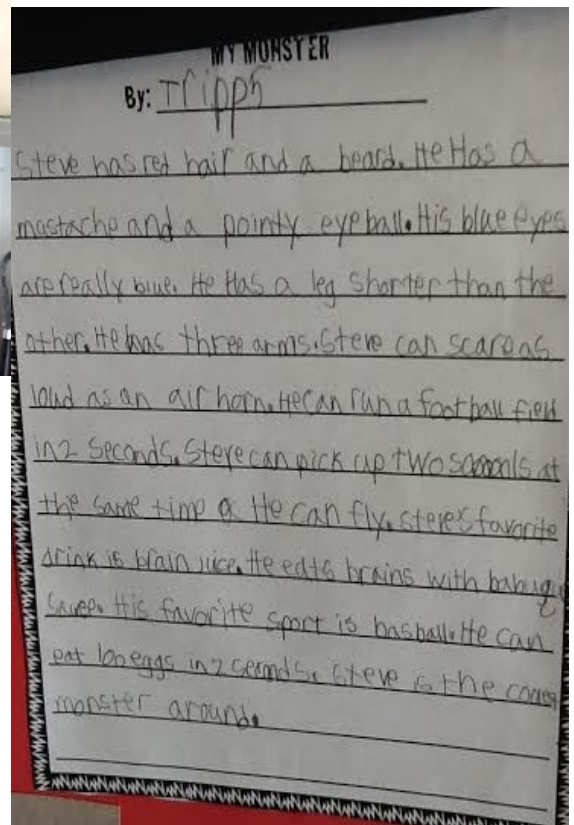 MY MONSTER
By: Tripp
Steve has red hair and a beard. He Has a
mustache and a pointy eyeball. His blue eyes
are really blue. He Has a leg shorter than the
other. He has three arms. Steve can scare as
loud as an air horn. He can run a football field
in 2 seconds. Steve can pick up two at
the same time He can fly. Steve's favorite
drink is brain juice. He eats brains with
His favorite sport is basball. He can
eat eggs in 2 seconds. Steve is the
monster around.